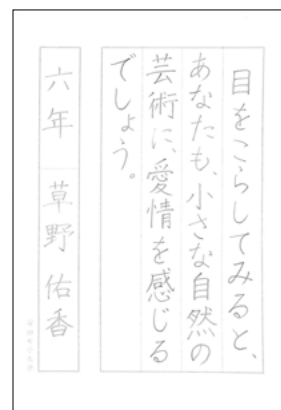 目をこらしてみると、
あなたも、小さな自然の
芸術に、愛情を感じる
でしょう。
六年 草野佑香